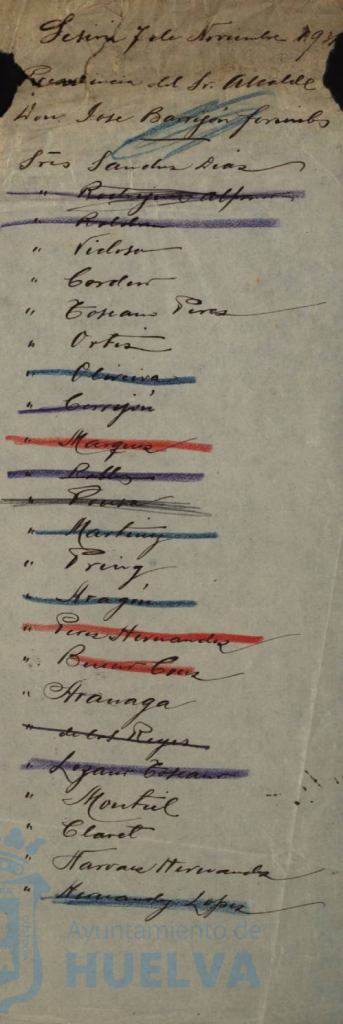 Sesión 7 de Noviembre 193
Presidencia del Sr. Alcalde
Don Jose Barrigón Fernández
Sres Sanchez Dias
" Rodriguez Alfonso
" Roldan
" Vidosa
" Cordero
" Toscano Peres
" Ortiz
" Oliveira
" Cerrejón
" Marquez
" Robles
" Ponce
" Martinez
" Pring
" Aragón
" Peres Hernandez
" Bueno Cruz
" Aranaga
" de los Reyes
" Lozano Toscano
" Montiel
" Claret
" Narvaez Hernandez
" Hernandez Lopez
Ayuntamiento de
HUELVA